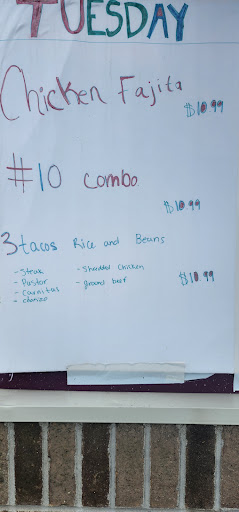 TUESDAY
Chicken Fajita
$10.99
#10 combo
$10.99
3 tacos Rice and Beans
- Steak
- Pastor
- Carnitas
- chorizo
- Shredded Chicken
- ground beef
$10.99